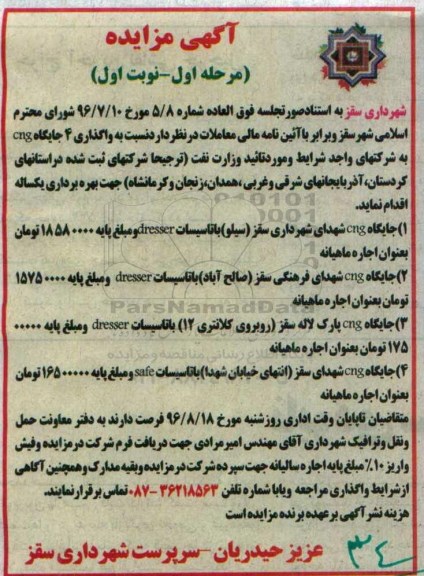 آگهی مزایده
(مرحله اول-نوبت اول)
شهرداری سقز به استنادصورتجلسه فوق العاده شماره ۵/۸ مورخ ۹۶/۷/۱۰ شورای محترم
اسلامی شهر سقز وبرابر با آئین نامه مالی معاملات در نظر دارد نسبت به واگذاری ۴ جایگاه cng
به شرکتهای واجد شرایط وموردتائید وزارت نفت (ترجیحا شرکتهای ثبت شده دراستانهای
کردستان،آذربایجانهای شرقی وغربی ،همدان،زنجان وکرمانشاه) جهت بهره برداری یکساله
اقدام نماید.
۱)جایگاه cng شهدای شهرداری سقز (سیلو) باتاسیسات dresser ومبلغ پایه ۱۸۵۸۰۰۰۰ تومان
بعنوان اجاره ماهیانه
۲)جایگاه cng شهدای فرهنگی سقز (صالح آباد) باتاسیسات dresser ومبلغ پایه ۱۵۷۵۰۰۰۰
تومان بعنوان اجاره ماهیانه
۳)جایگاه cng پارک لاله سقز (روبروی کلانتری ۱۲) باتاسیسات dresser ومبلغ پایه ۰۰۰۰۰
۱۷۵ تومان بعنوان اجاره ماهیانه
۴)جایگاه cng شهدای سقز (انتهای خیابان شهدا) باتاسیسات safe ومبلغ پایه ۱۶۵۰۰۰۰۰ تومان
بعنوان اجاره ماهیانه
متقاضیان تاپایان وقت اداری روزشنبه مورخ ۹۶/۸/۱۸ فرصت دارند به دفتر معاونت حمل
ونقل وترافیک شهرداری آقای مهندس امیرمرادی جهت دریافت فرم شرکت درمزایده وفیش
واریز ۱۰٪ مبلغ پایه اجاره سالیانه جهت سپرده شرکت درمزایده وبقیه مدارک وهمچنین آگاهی
ازشرایط واگذاری مراجعه ویابا شماره تلفن ۳۶۲۱۸۵۶۳-۰۸۷ تماس برقرار نمایند.
هزینه نشر آگهی برعهده برنده مزایده است
عزیز حیدریان -سرپرست شهرداری سقز
۳۴
ParsNamadData